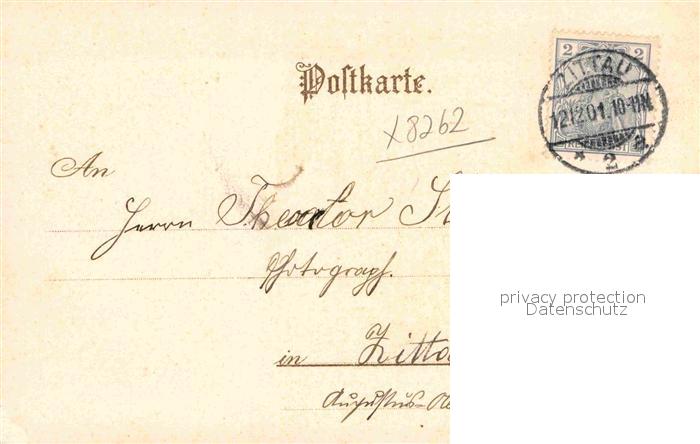 Postkarte.
2 2
ZITTAU
12/12 01. 10-11N.
* 2 a
x8262
An
Herrn Theodor
Photograph.
privacy protection
Datenschutz
in Zitta
Augustus-